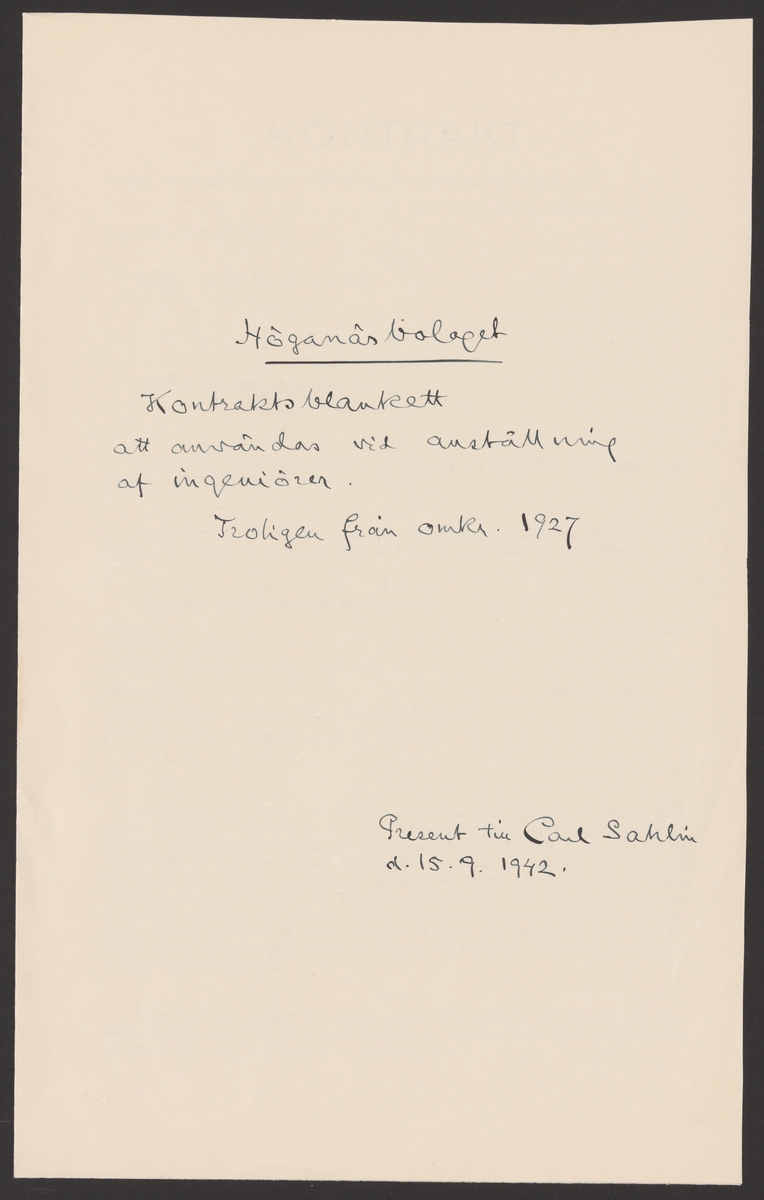 KONTRAKT
Höganäsbolaget
Kontraktsblankett
att användas vid anställning
af ingeniörer.
Troligen från omkr. 1927
Present till Carl Sahlin
d. 15.9. 1942.